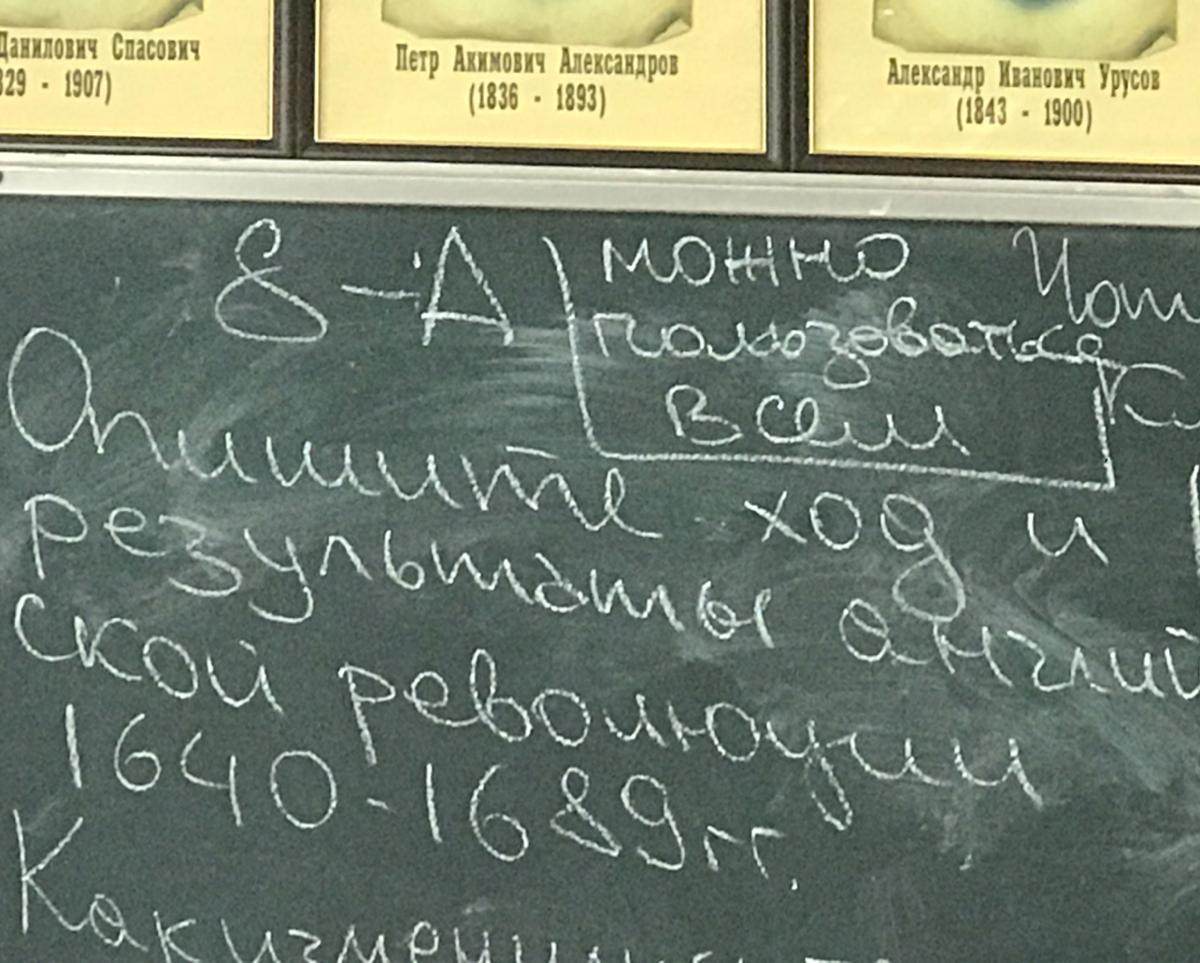 Данилович Спасович
829 - 1907)
Петр Акимович Александров
(1836 - 1893)
Александр Иванович Урусов
(1843 - 1900)
8-А
можно
пользоваться
всем
Опишите ход и
результаты англий
ской революции
1640-1689гг.
Как